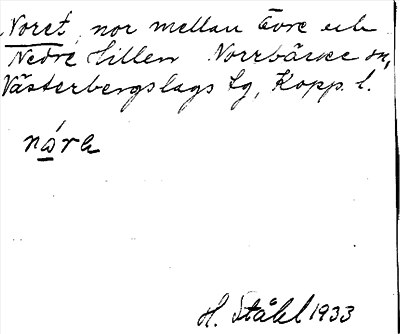 Noret, nor mellan Övre och
Nedre Hillen Norrbärke sn,
Västerbergslags tg, Kopp. l.
nórə
H. Ståhl 1933